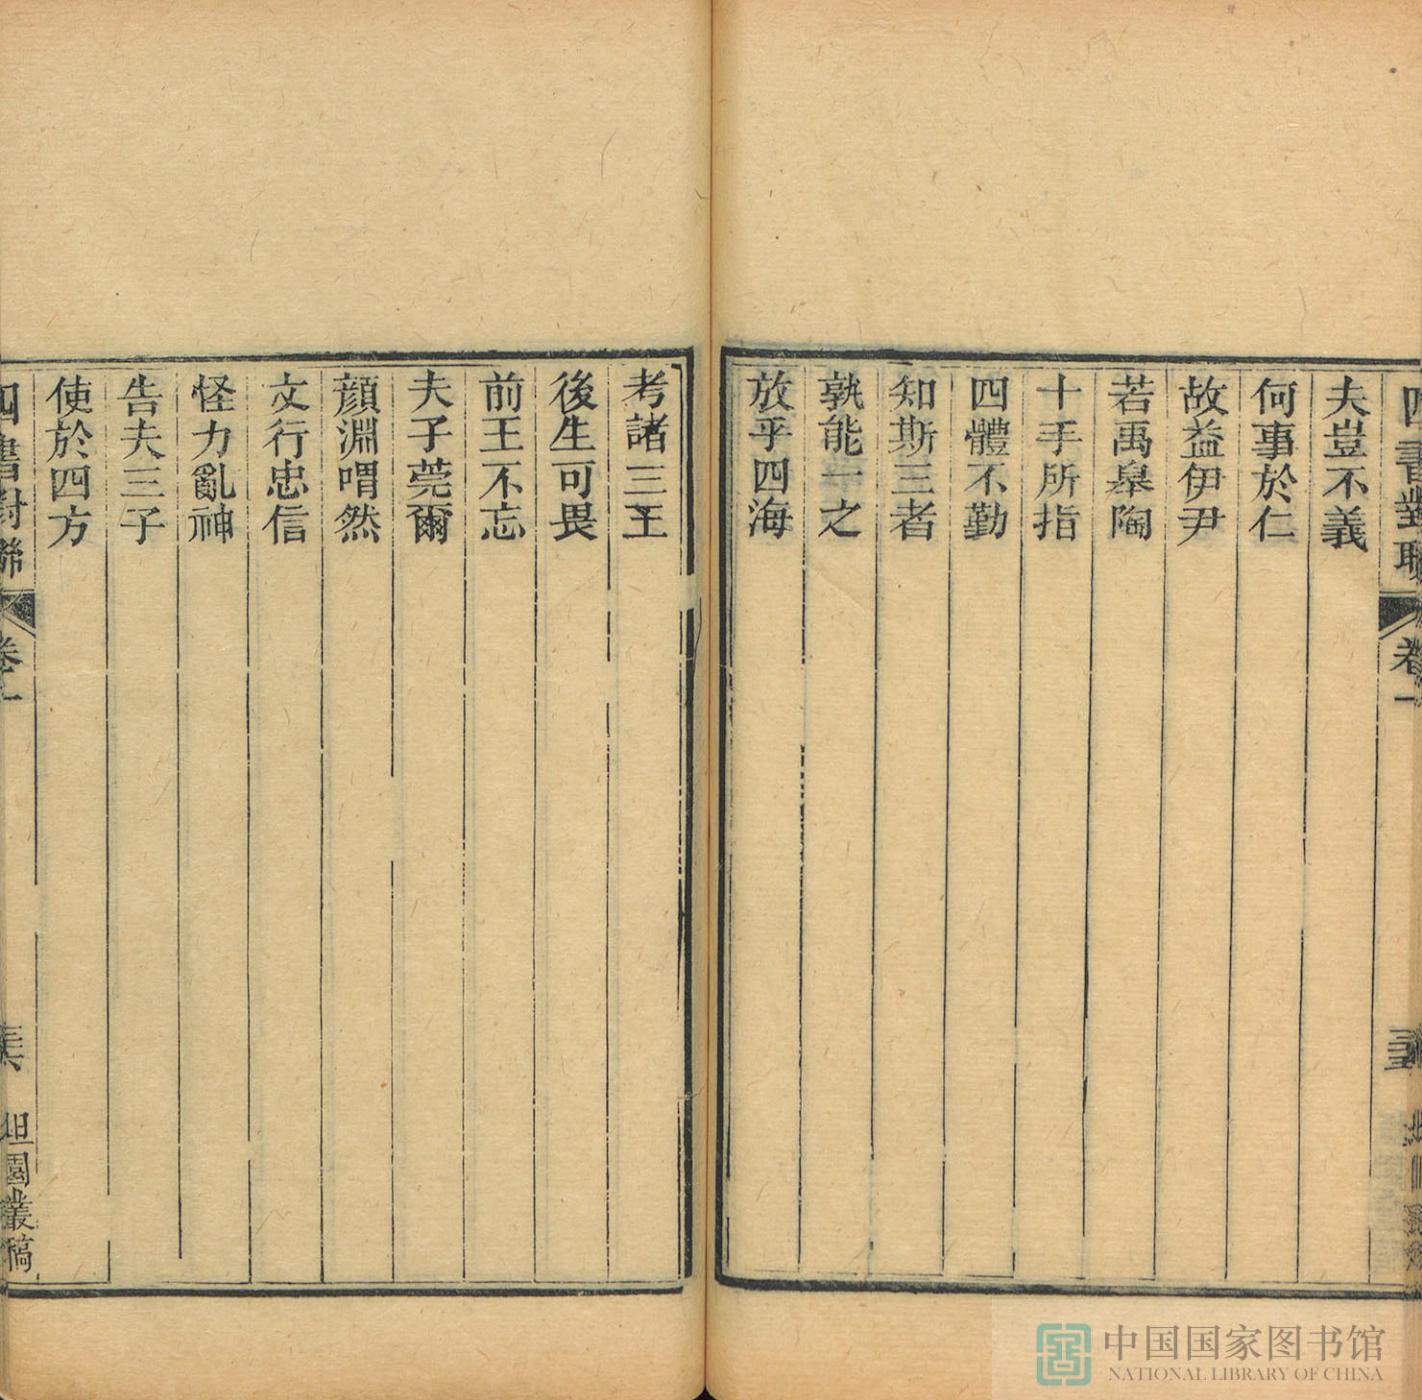 四書對聯 卷一
夫豈不義
何事於仁
故益伊尹
若禹臯陶
十手所指
四體不勤
知斯三者
孰能一之
放乎四海
考諸三王
後生可畏
前王不忘
夫子莞爾
顏淵喟然
文行忠信
怪力亂神
告夫三子
使於四方
四書對聯 卷一 坦園叢稿
中国国家图书馆
NATIONAL LIBRARY OF CHINA